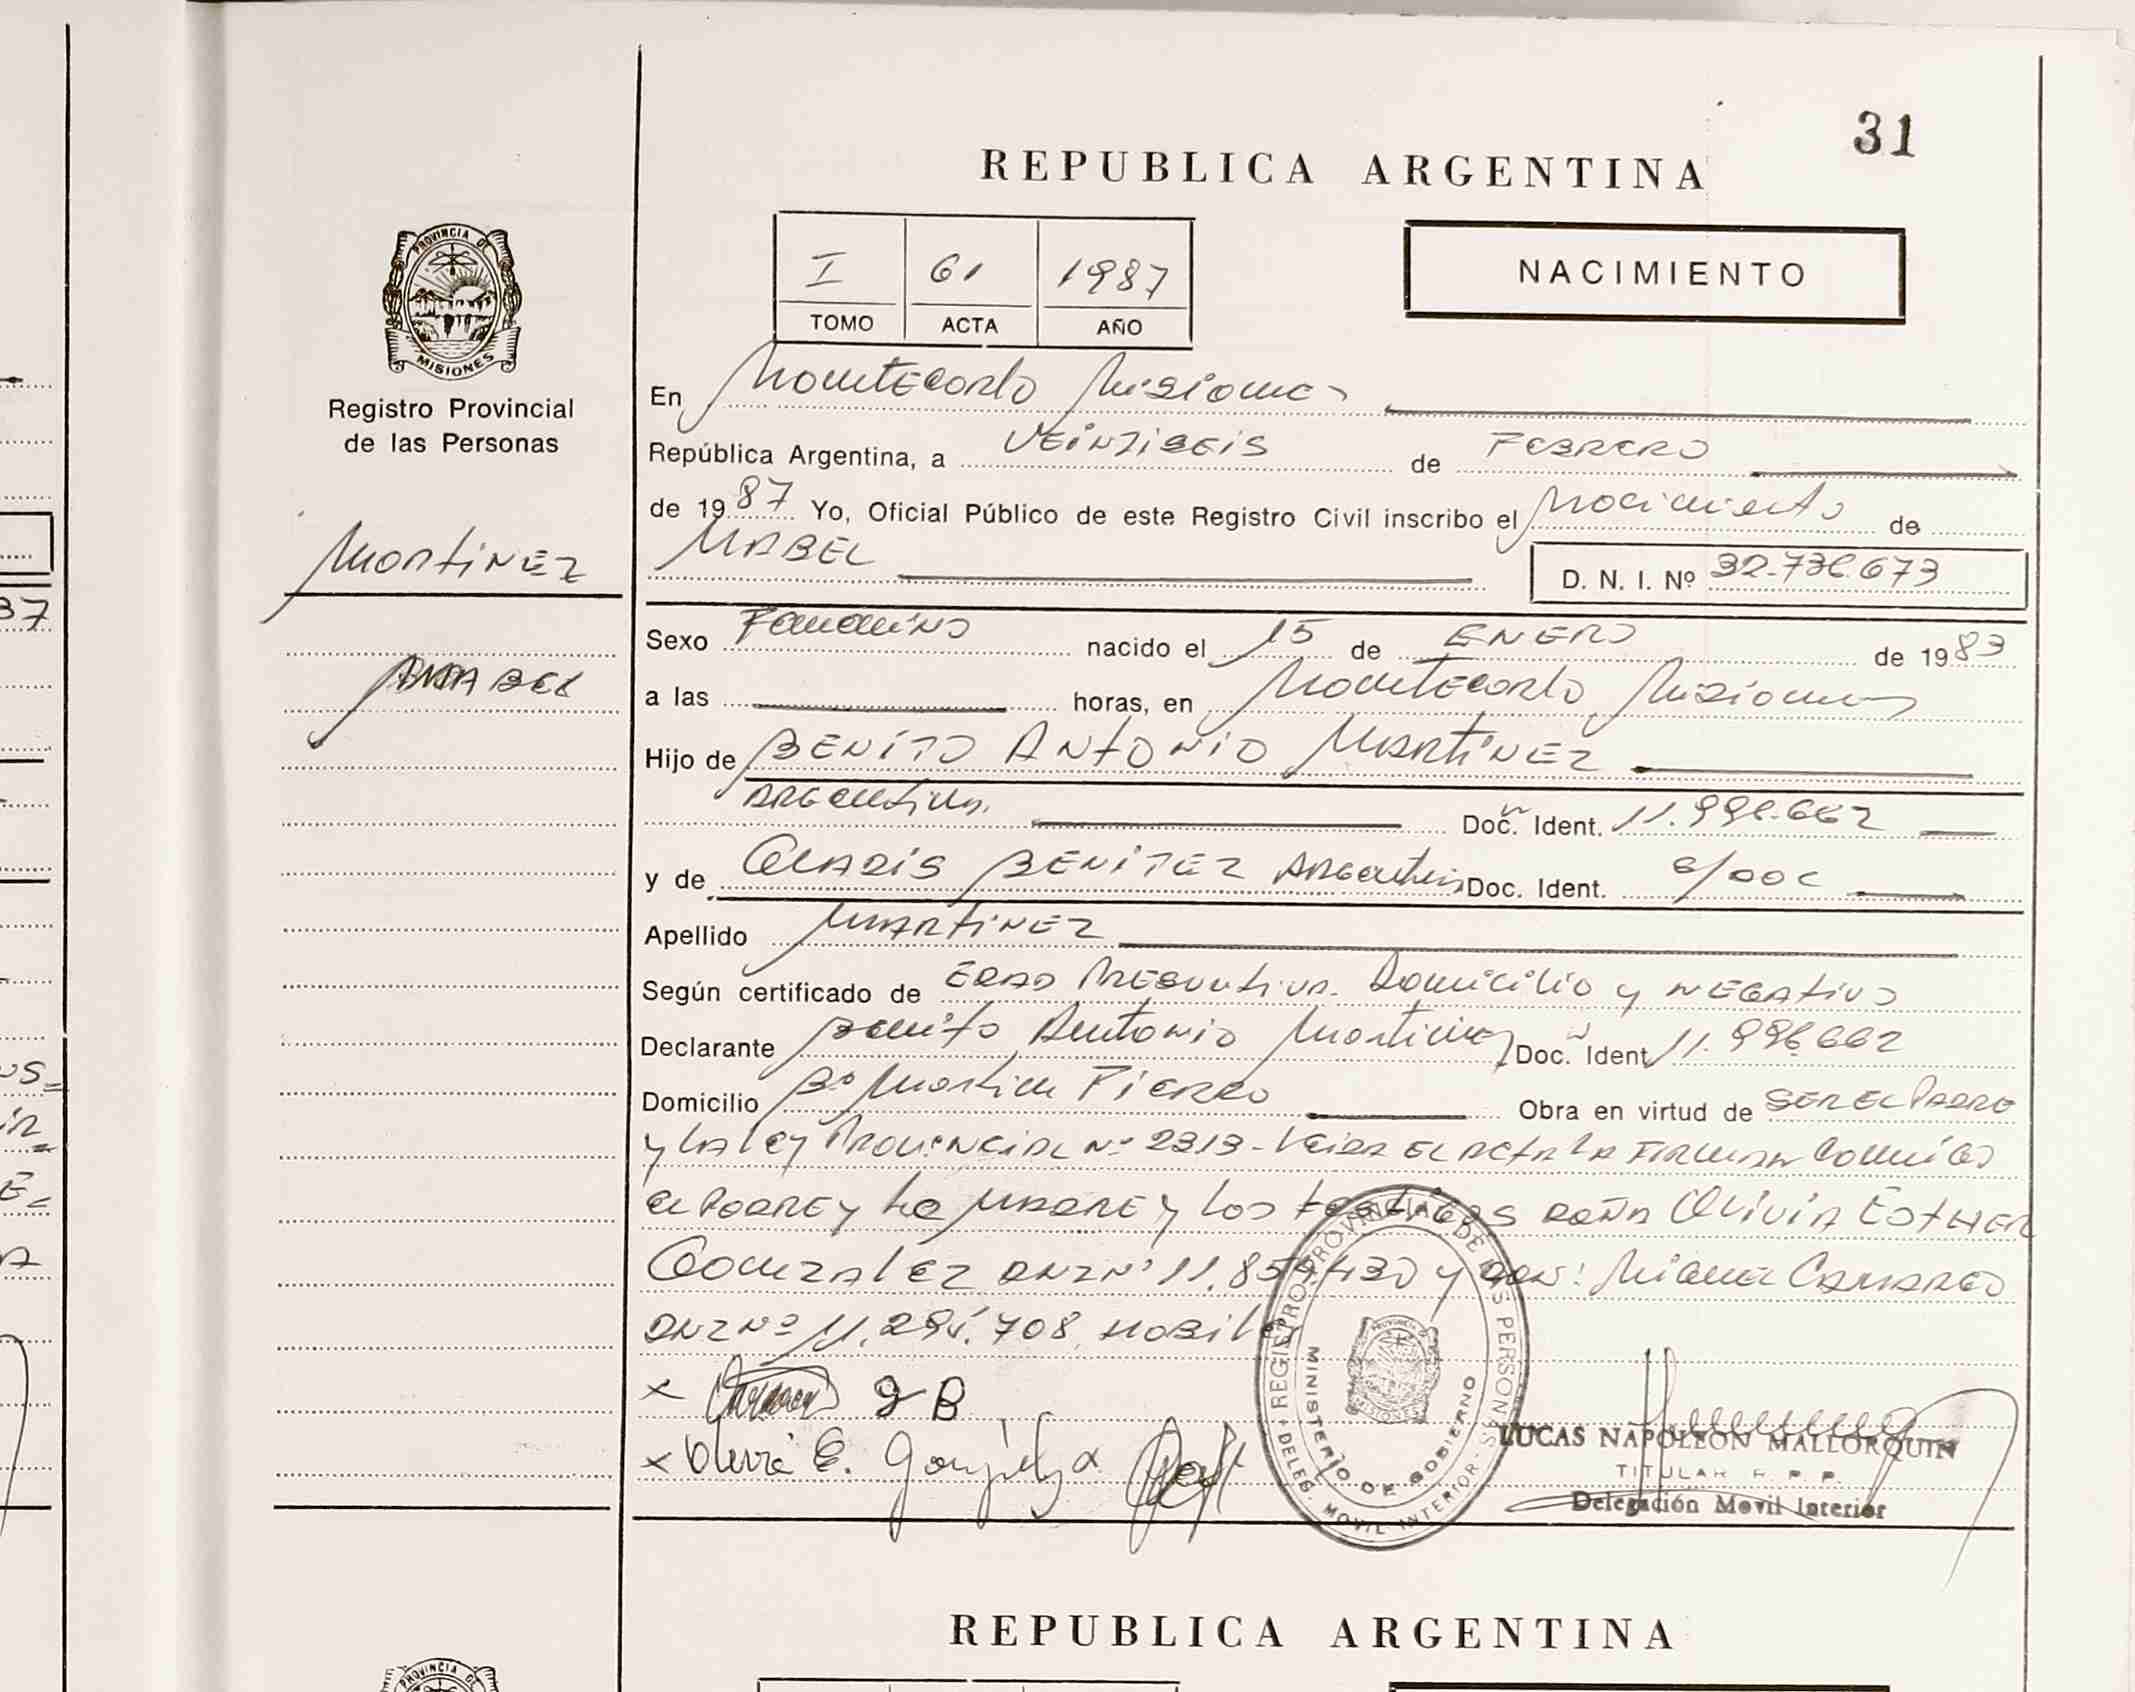 31
REPUBLICA ARGENTINA
I 61 1987
TOMO ACTA AÑO
NACIMIENTO
PROVINCIA DE
MISIONES
Registro Provincial
de las Personas
MARTINEZ
MABEL
En Montecarlo Misiones
República Argentina, a VEINTISEIS de FEBRERO
de 1987 Yo, Oficial Público de este Registro Civil inscribo el Nacimiento de
MABEL D. N. I. Nº 32.736.673
Sexo Femenino nacido el 15 de ENERO de 1983
a las horas, en Montecarlo Misiones
Hijo de BENITO ANTONIO MARTINEZ
Argentina. Doc. Ident. 11.996.662
y de GLADIS BENITEZ Argentina Doc. Ident. s/DOC
Apellido MARTINEZ
Según certificado de EDAD Presuntiva. Domicilio y NEGATIVO
Declarante Benito Antonio Martinez Doc. Ident 11.996662
Domicilio Bº Martin Fierro Obra en virtud de SER EL PADRE
y LA LEY PROVINCIAL Nº 2313 - Leida EL ACTA LA FIRMAN Conmigo
el PADRE y La MADRE y Los testigos DOÑA OLIVIA ESTHER
GONZALEZ DNI Nº 11.854.430 y DON: Miguel CAMARGO
DNI Nº 11.295.708, Habiles
x g B
x Olivia E. González
REGISTRO PROVINCIAL DE LAS PERSONAS
DELEG. MOVIL INTERIOR
MINISTERIO DE GOBIERNO
LUCAS NAPOLEON MALLORQUIN
TITULAR R. P. P.
Delegación Movil Interior
REPUBLICA ARGENTINA
PROVINCIA DE